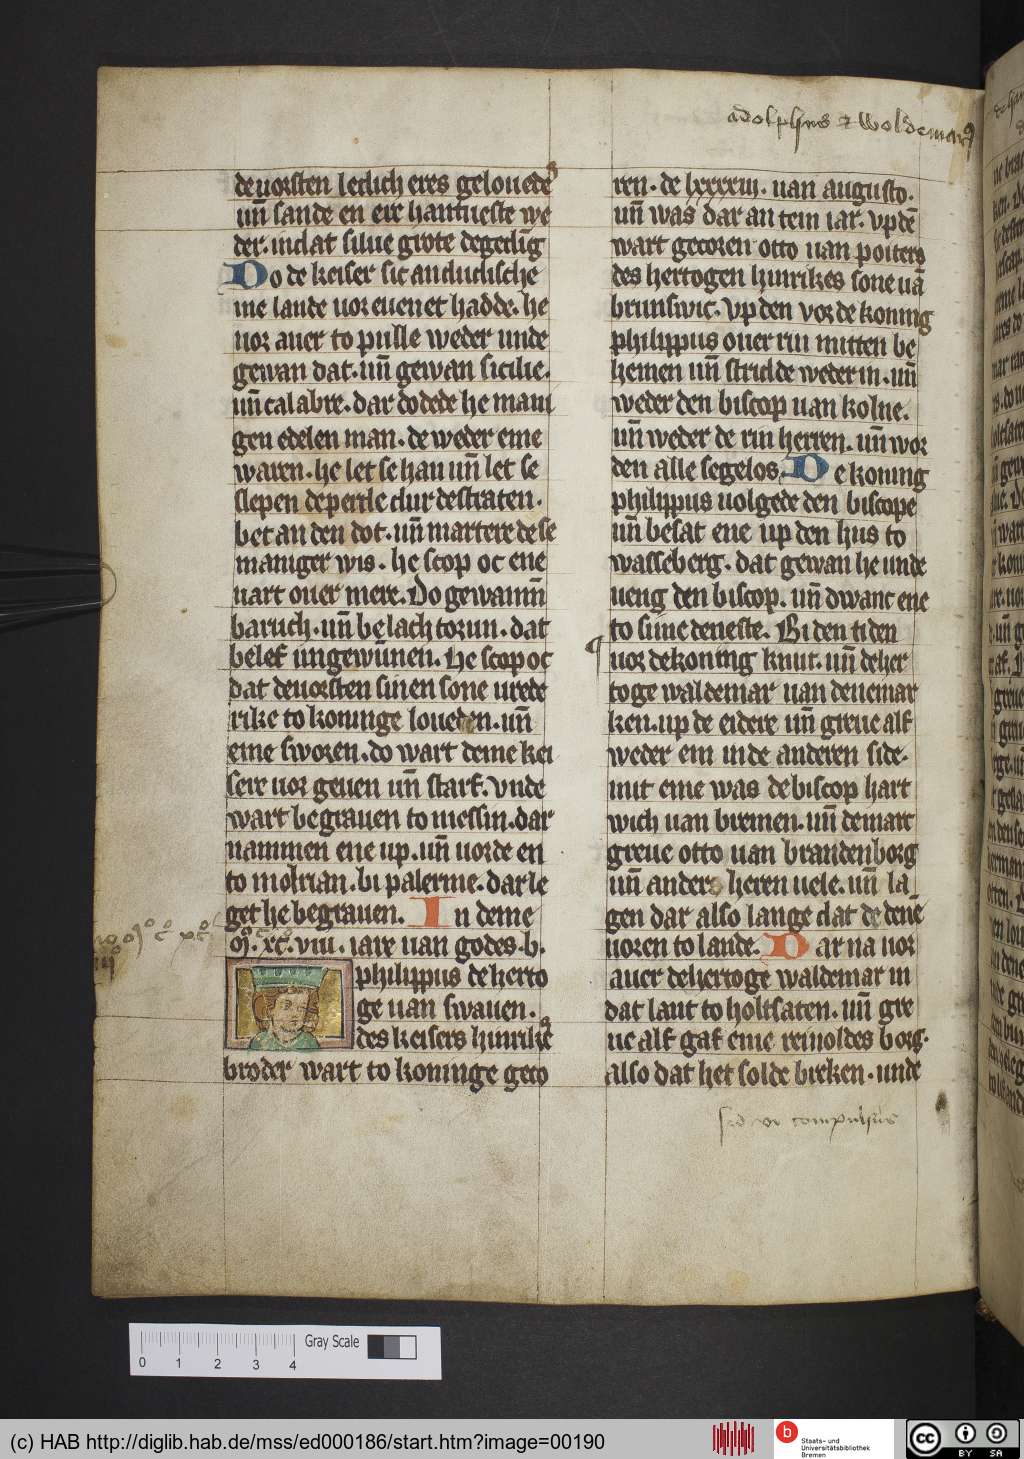 adolphus et woldemarus
de uorsten ledich eres gelouedes
uñ sande en ere hantueste we
der. indat silue grote degeding
Do de keiser sic andudische
me lande uor euenet hadde. he
uor auer to pulle weder unde
gewan dat. uñ gewan sicilie.
uñ calabre. dar do dede he mani
gen edelen man. de weder eme
waren. he let se hau uñ let se
slepen de perde dur de straten.
bet an den dot. uñ martere de se
maniger wis. he scop oc ene
uart ouer mere. Do gewannñ
baruch. uñ belach torun. dat
belef ungewūnen. He scop oc
dat deuorsten sinen sone urede
rike to koninge loueden. uñ
eme sworen. do wart deme kei
sere uor geuen uñ starf. Vnde
wart begrauen to messin. dar
nammen ene up. uñ uorde en
to morian. bi palerme. dar le
get he begrauen. In deme
m°. xc°. viii. iare uan godes. b.
philippus de herto
ge uan swauen.
des keisers hinrikes
broder wart to koninge geco
ren. de lxxxxiii. uan augusto.
uñ was dar an tein iar. vp dē
wart gecoren otto uan poiters
des hertogen hinrikes sone uā
brunswic. Vp den vor de koning
philippus ouer rin mitten be
hemen uñ stridde weder in. uñ
weder den biscop uan kolne.
uñ weder de rin herren. uñ wor
den alle segelos. De koning
philippus uolgede den biscope
uñ besat ene up den hus to
wasseberg. dat gewan he unde
ueng den biscop. uñ dwanc ene
to sune deneste. Bi den tiden
¶ uor de koning knut. uñ de her
toge waldemar uan denemar
ken. up de eidere uñ greue alf
weder em in de anderen side.
mit eme was de biscop hart
wich uan bremen. uñ de marc
greue otto uan brandenborg
uñ anders heren uele. uñ la
gen dar also lange dat de denē
uoren to lande. Dar na uor
auer de hertoge waldemar in
dat lant to holtsaten. uñ gre
ue alf gaf eme reinoldes borg.
also dat het solde breken. unde
Gray Scale
0 1 2 3 4
(c) HAB http://diglib.hab.de/mss/ed000186/start.htm?image=00190
b
Staats- und
Universitätsbibliothek
Bremen
cc
BY SA